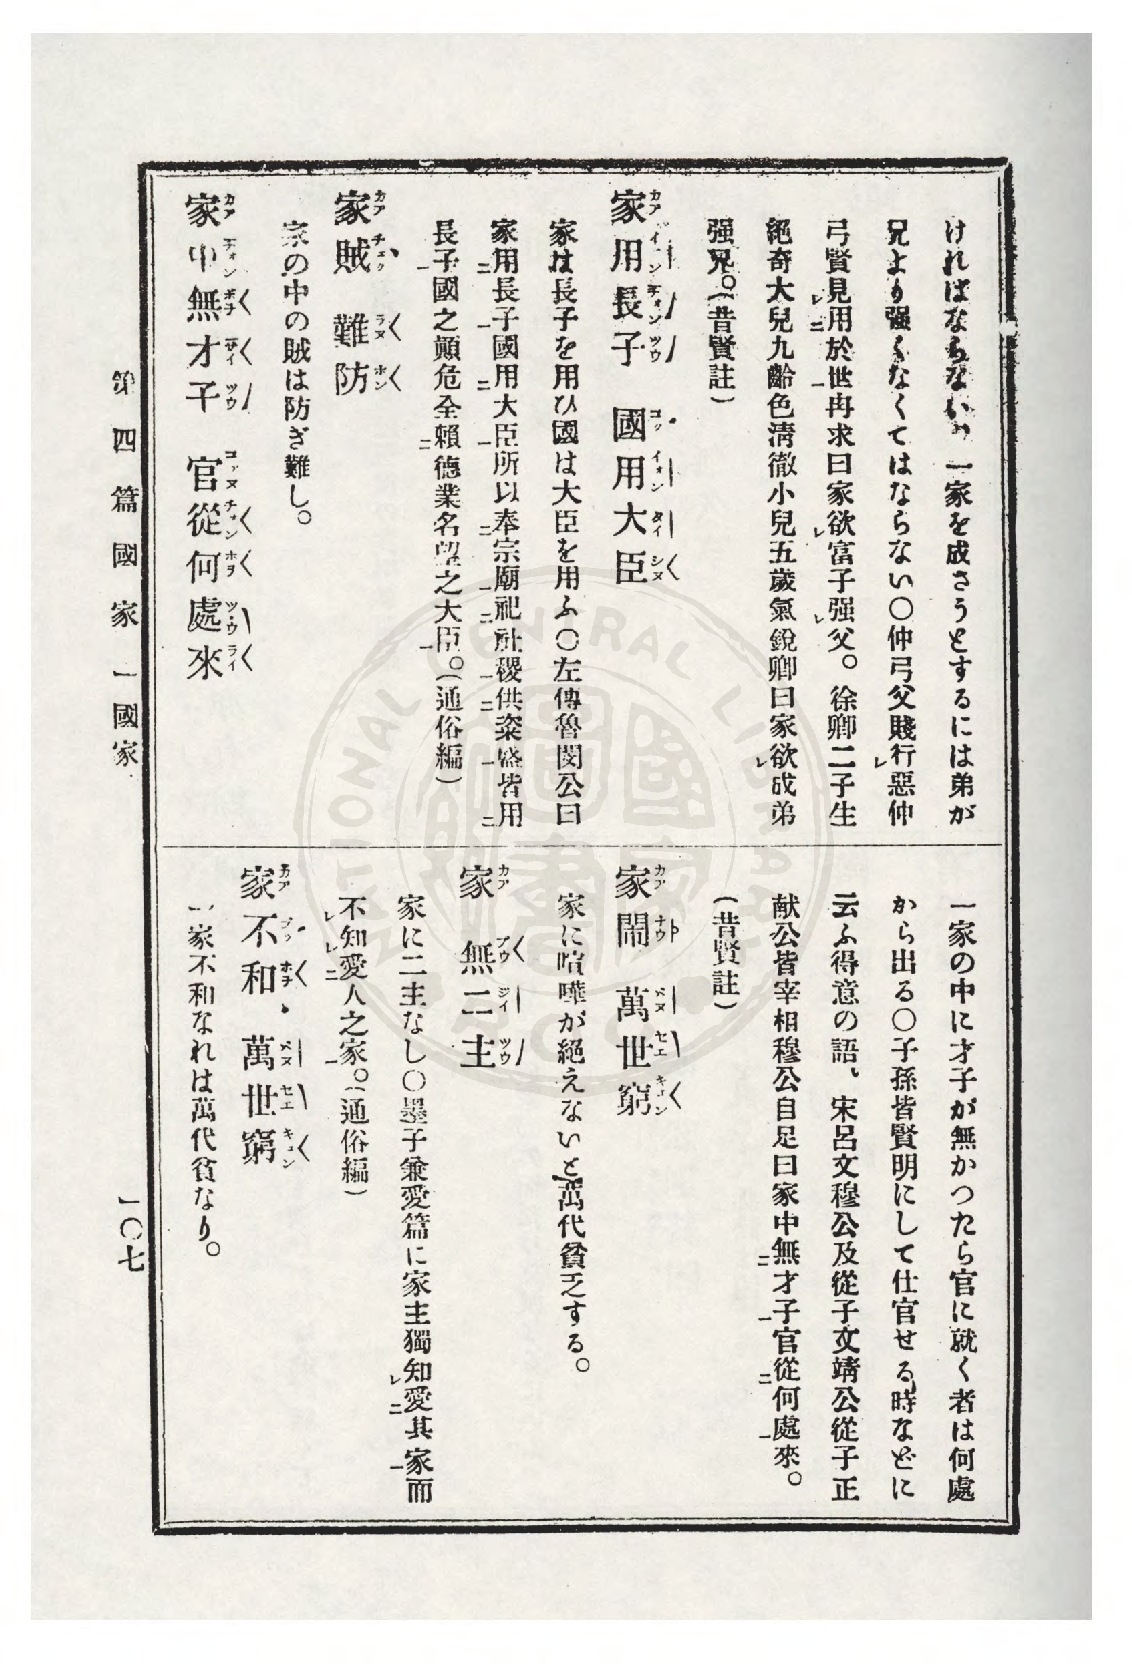 ければならない、一家を成さうとするには弟が
兄より强くなくてはならない〇仲弓父賤行惡仲
弓賢見用於世冉求曰家欲富子强父。徐卿二子生
絕奇大兒九齡色淸徹小兒五歲氣銳卿曰家欲成弟
强兄。(昔賢註)
家用長子 國用大臣
家は長子を用ひ國は大臣を用ふ〇左傳魯閔公曰
家用長子國用大臣所以奉宗廟祀社稷供粢盛皆用
長子國之顚危全賴德業名望之大臣。(通俗編)
家賊 難防
家の中の賊は防ぎ難し。
家中無才子 官從何處來
一家の中に才子が無かつたら官に就く者は何處
から出る〇子孫皆賢明にして仕官せる時などに
云ふ得意の語、宋呂文穆公及從子文靖公從子正
献公皆宰相穆公自足曰家中無才子官從何處來。
(昔賢註)
家鬧 萬世窮
家に喧嘩が絕えないと萬代貧乏する。
家 無二主
家に二主なし〇墨子兼愛篇に家主獨知愛其家而
不知愛人之家。(通俗編)
家不和、萬世窮
一家不和なれは萬代貧なり。
第四篇 國家 一 國家
一〇七
NATIONAL CENTRAL LIBRARY